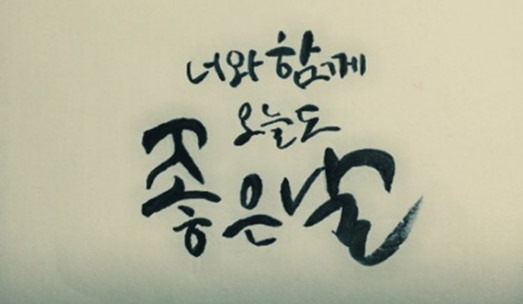 너와 함께
오늘도
좋은날